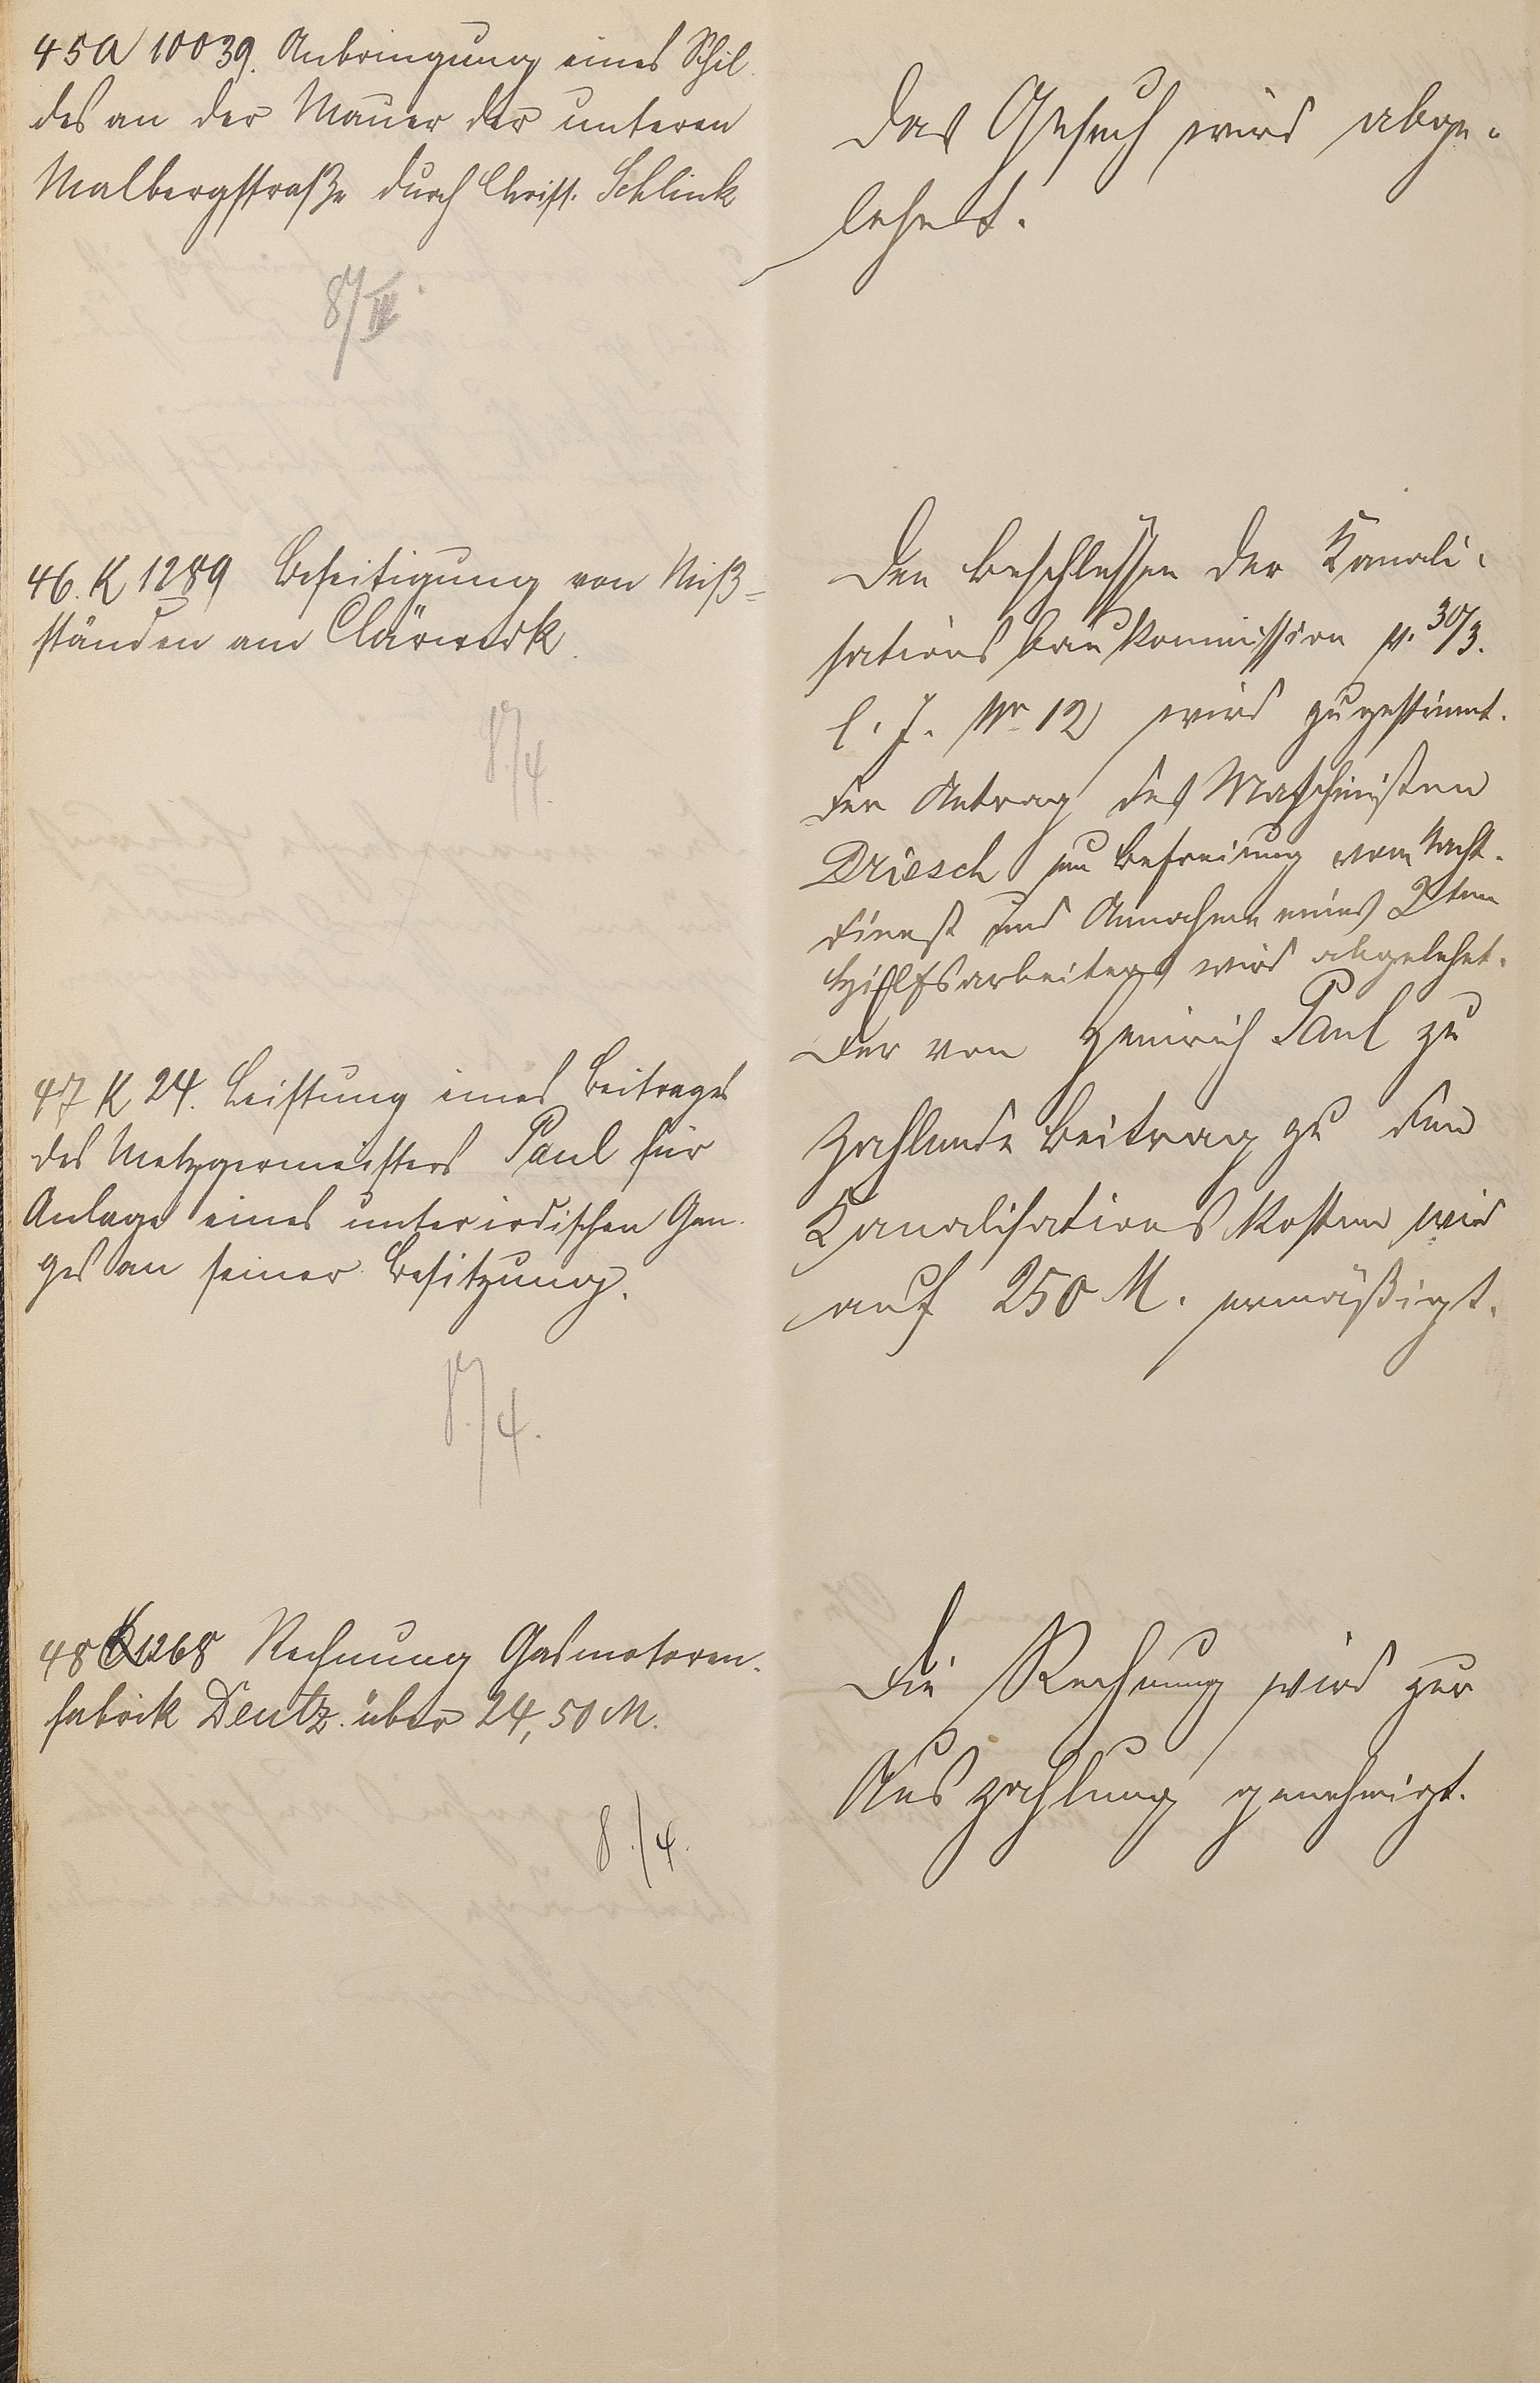 45 A 10039. Anbringung eines Schil-
des an der Mauer der unteren
Malbergstraße durch Christ. Schlink
8/IV.
Das Gesuch wird abge-
lehnt.
46. K 1289 Beseitigung von Miß=
ständen am Clärwerk.
8/4.
Den Beschlüssen der Kanali-
sationsbaukommission v. 30/3.
l. J. No 12 wird zugestimmt.
Der Antrag des Maschinisten
Driesch um Befreiung vom Nacht-
dienst und Annahme eines 2ten
Hilfsarbeiters wird abgelehnt.
47 K 24. Leistung eines Beitrages
des Metzgermeisters Paul für
Anlage eines unterirdischen Gan-
ges an seiner Besitzung.
8./4.
Der von Heinrich Paul zu
zahlende Beitrag zu den
Kanalisationskosten wird
auf 250 M. ermäßigt.
48 K 1268 Rechnung Gasmotoren-
fabrik Deutz über 24,50 M.
8./4.
Die Rechnung wird zur
Auszahlung genehmigt.